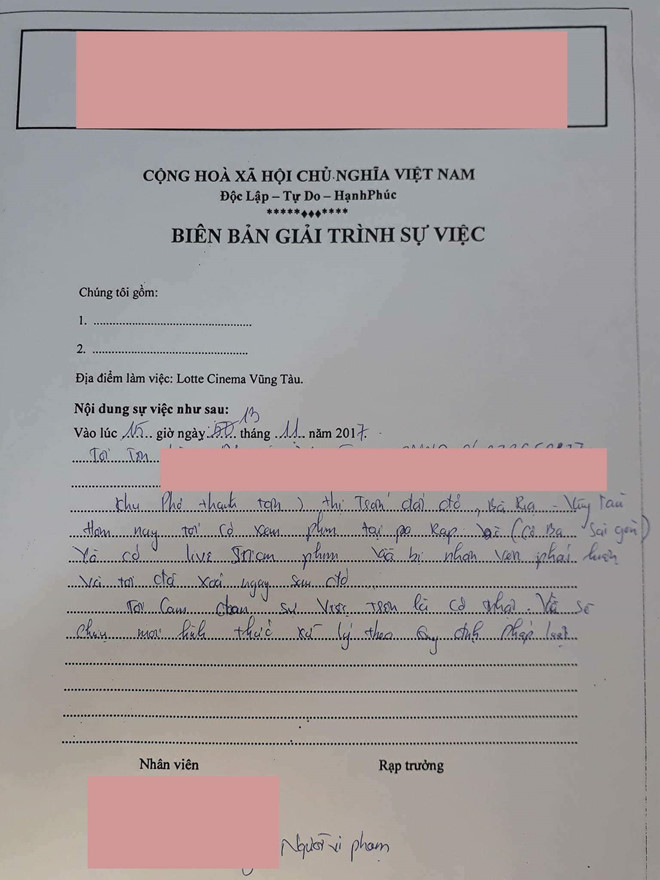 CỘNG HOÀ XÃ HỘI CHỦ NGHĨA VIỆT NAM
Độc Lập – Tự Do – HạnhPhúc
*****♦♦♦****
BIÊN BẢN GIẢI TRÌNH SỰ VIỆC
Chúng tôi gồm:
1. ......................................................
2. ......................................................
Địa điểm làm việc: Lotte Cinema Vũng Tàu.
Nội dung sự việc như sau:
13
Vào lúc 15 giờ ngày tháng 11 năm 2017.
Tôi Tên
Khu Phố thanh tân, thị Trấn đất đỏ, Bà Rịa - Vũng Tàu
Hôm nay tôi có xem phim tại Rạp (Cô Ba Sài gòn)
Và có live Stream phim và bị nhân viên phát hiện
Và tôi đã xoá ngay sau đó
Tôi Cam đoan sự Việc trên là có thật. Và sẽ
chịu mọi hình thức xử lý theo Quy định Pháp luật
Nhân viên
Rạp trưởng
Người vi phạm